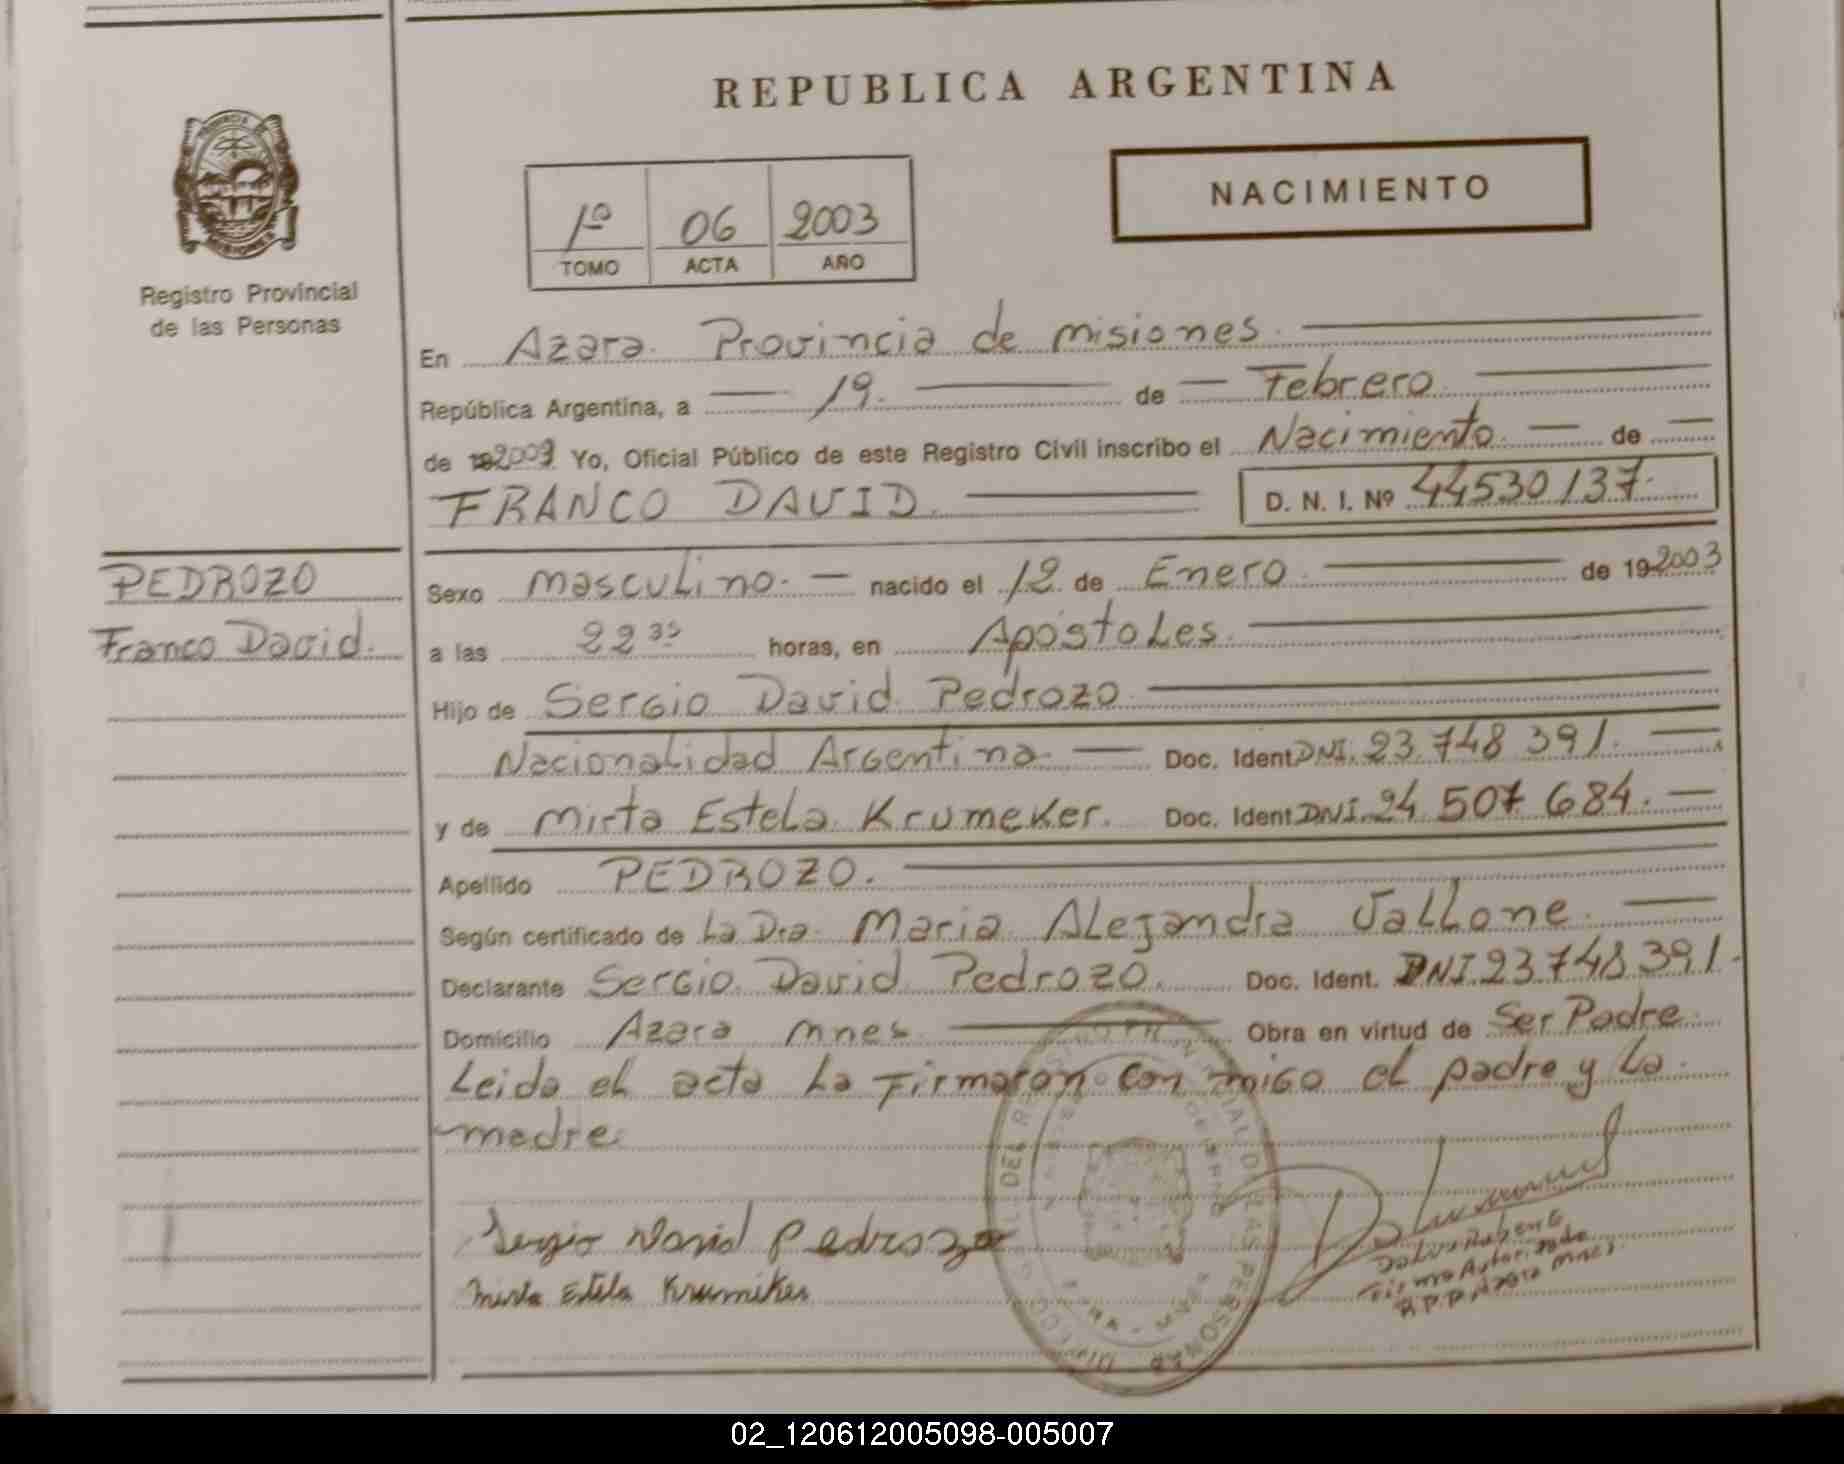 REPUBLICA ARGENTINA
NACIMIENTO
1º 06 2003
TOMO ACTA AÑO
Registro Provincial
de las Personas
En Azara. Provincia de misiones.
República Argentina, a 19. de Febrero.
de 2003 Yo, Oficial Público de este Registro Civil inscribo el Nacimiento. de
FRANCO DAVID. D. N. I. Nº 44530137.
PEDROZO
Franco David.
Sexo masculino. nacido el 12 de Enero. de 19 2003
a las 22 35 horas, en Apostoles.
Hijo de Sergio David Pedrozo
Nacionalidad Argentina. Doc. Ident DNI. 23.748 391.
y de Mirta Estela Krumeker. Doc. Ident DNI. 24 507 684.
Apellido PEDROZO.
Según certificado de La Dra. Maria Alejandra Jallone.
Declarante Sergio David Pedrozo. Doc. Ident. DNI 23748391.
Domicilio Azara mnes. Obra en virtud de Ser Padre.
Leida el acta La Firmaron con migo el padre y La
madre.
Sergio David Pedrozo
Mirta Estela Krumiker
Firma Autorizada
02_120612005098-005007